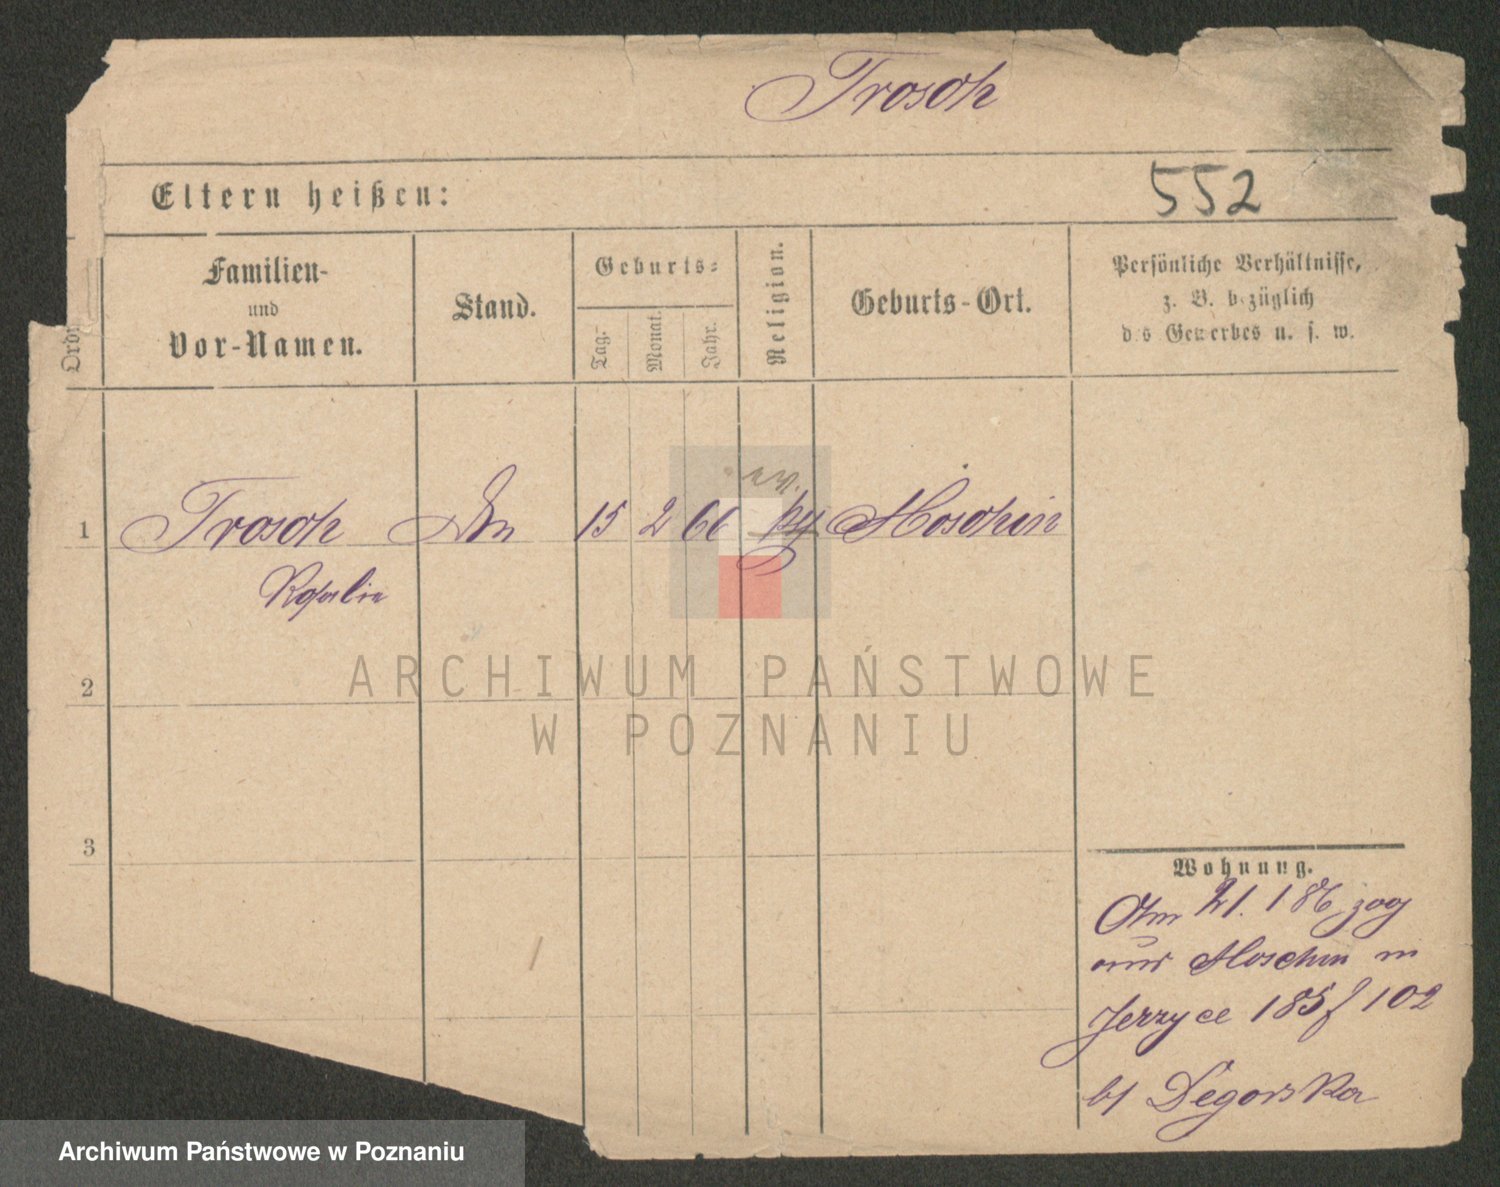 Trosch
Eltern heißen:
552
Familien-
und
Vor-Namen.
Stand.
Geburts-
Tag.
Monat.
Jahr.
Religion.
Geburts-Ort.
Persönliche Verhältnisse,
z. B. bezüglich
des Gewerbes u. s. w.
ev.
1 Trosch 15 2 66 Moschin
Rosalie
2
3
ARCHIWUM PAŃSTWOWE
W POZNANIU
Wohnung.
Am 21. 1 86 zog
aus Moschin in
Jerzyce 185 f 102
b/ Degorska
Archiwum Państwowe w Poznaniu